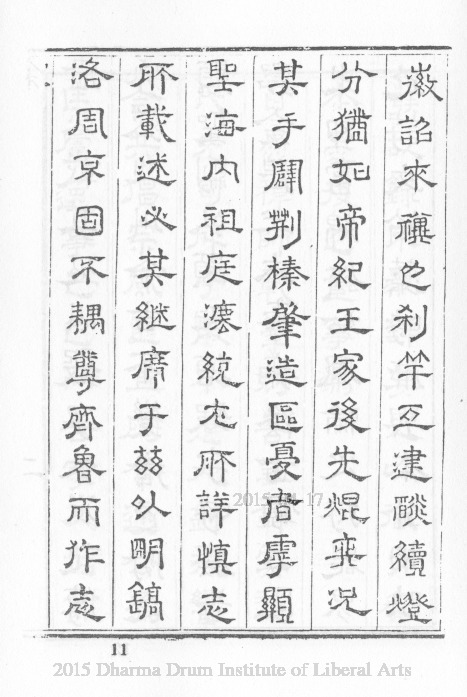 徽詔來禩也刹竿互建燄續燈
分猶如帝紀王家後先焜奕況
其手闢荊榛肇造區夏者虖顯
聖海內祖庭灋統尤所詳慎志
所載述必其繼席于茲以明鎬
洛周京固不耦尊齊魯而作志
11
2015 Dharma Drum Institute of Liberal Arts